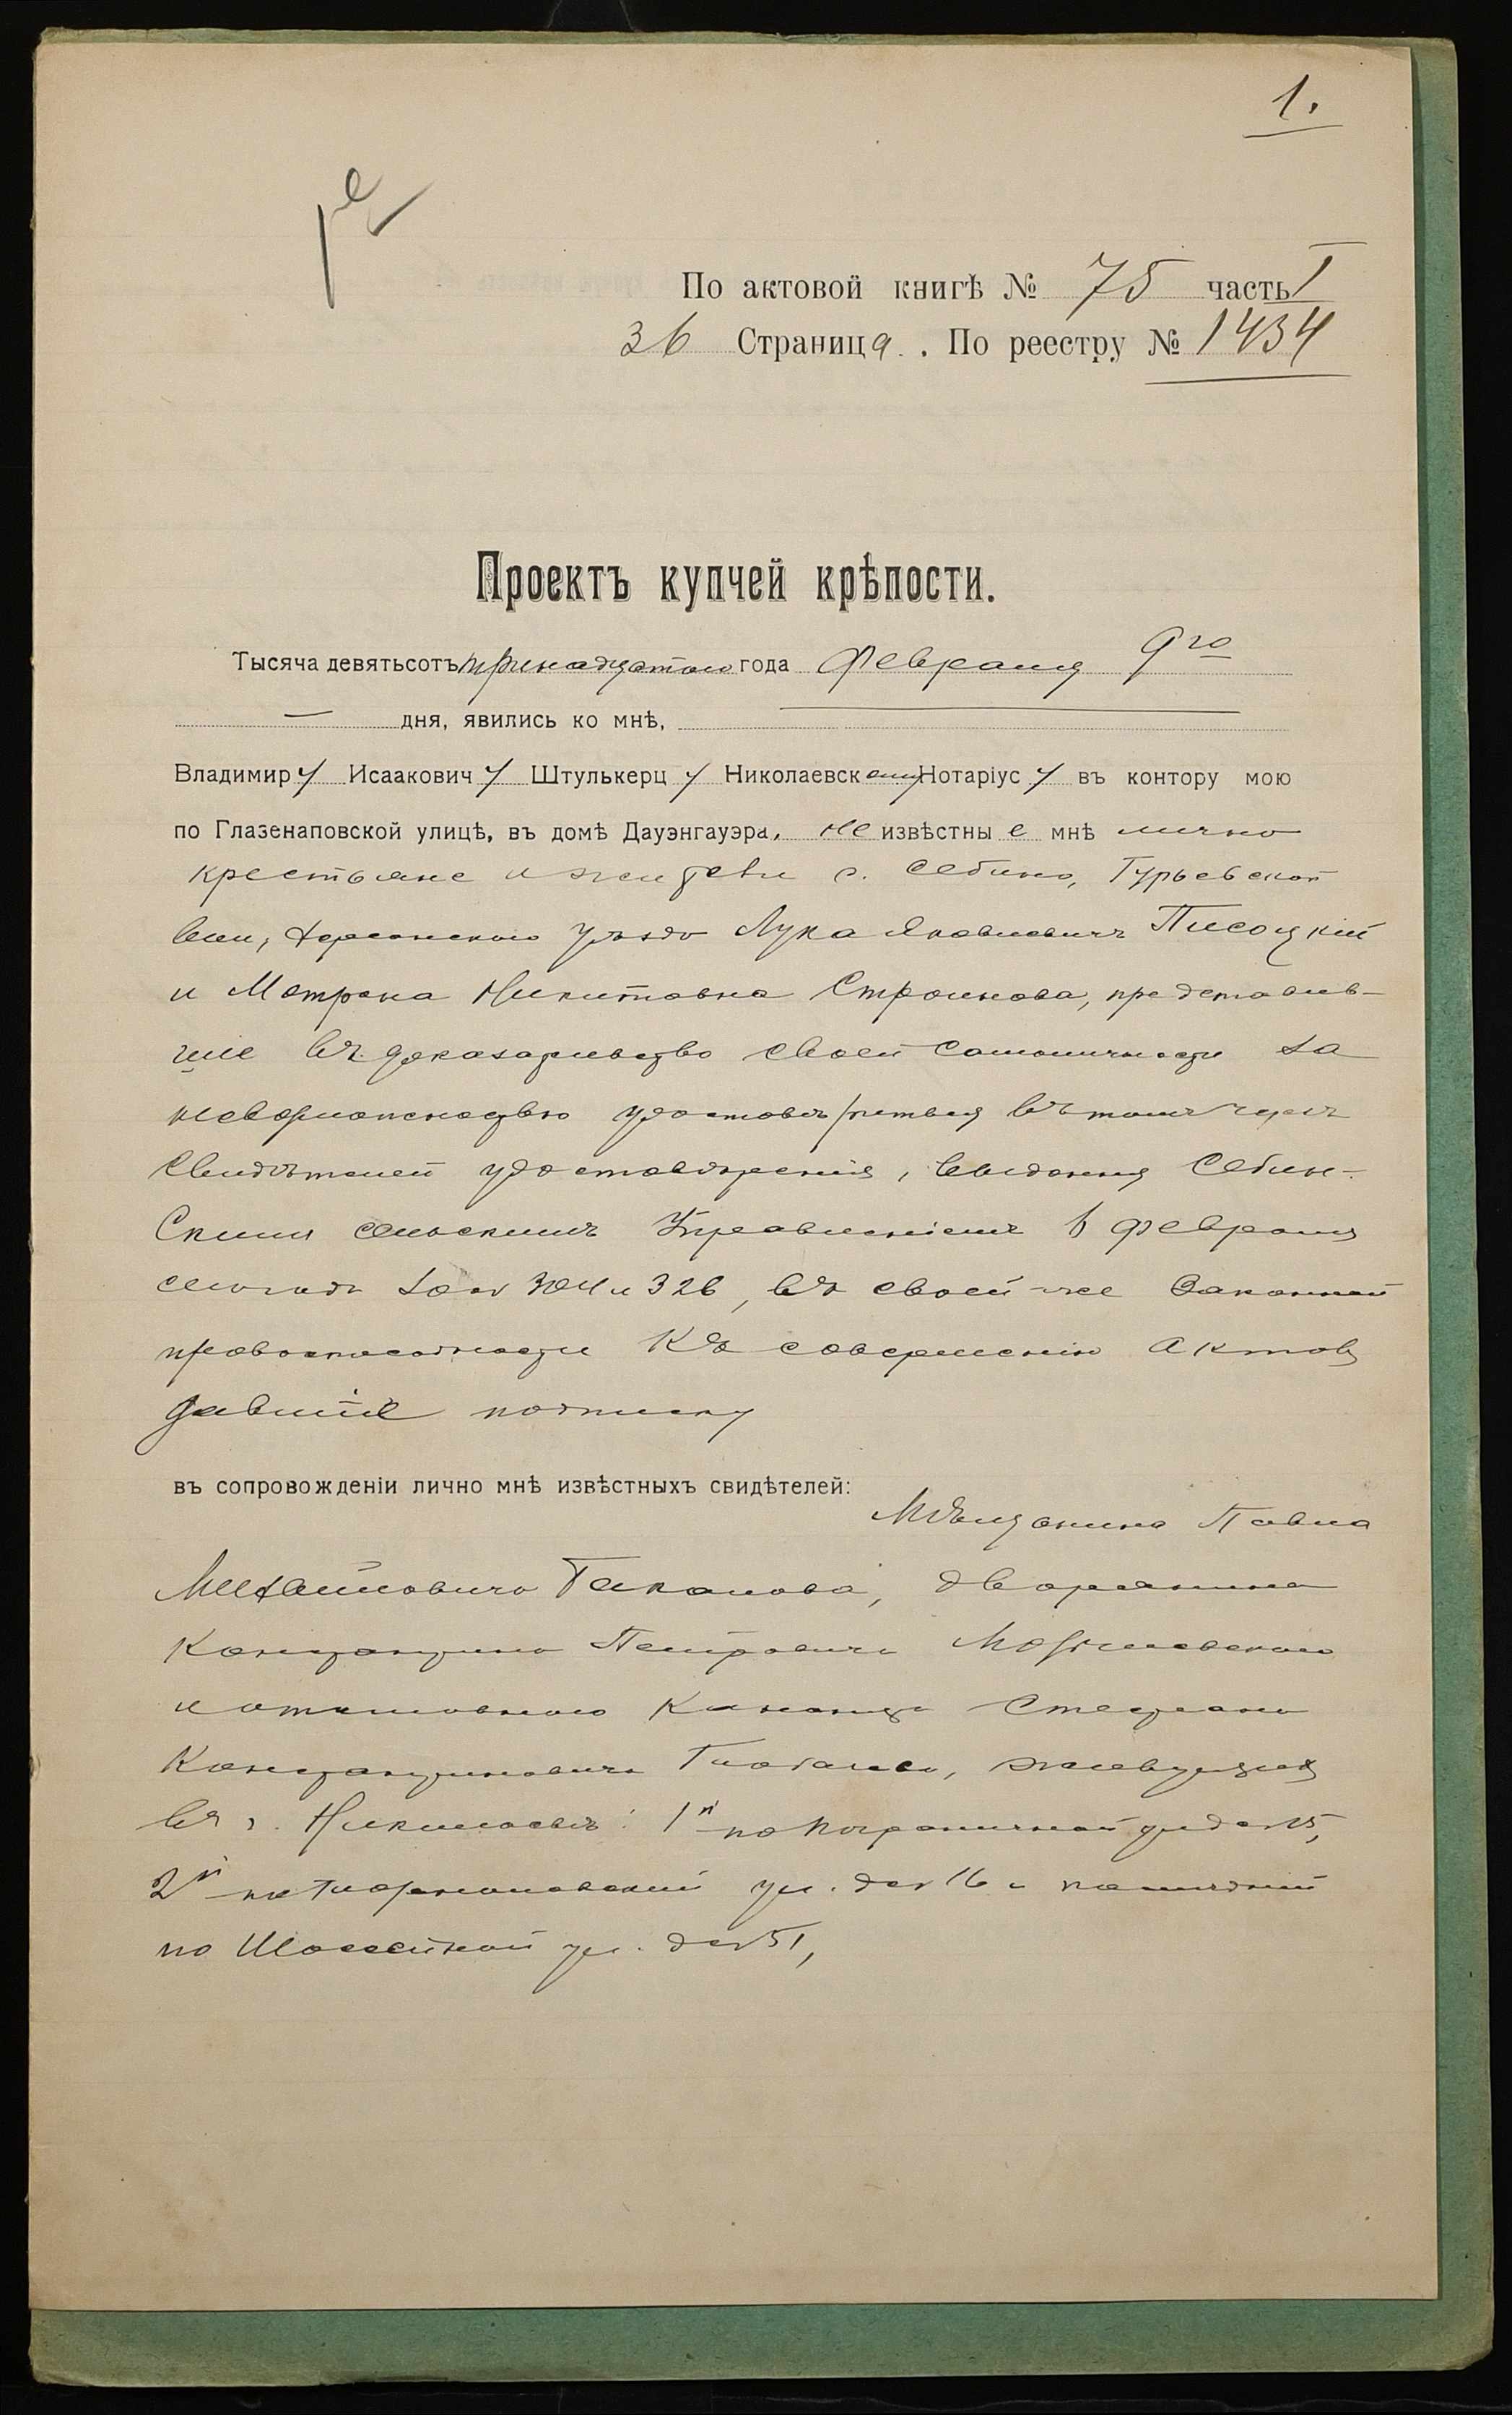 1.
По актовой книгѣ № 75 часть I
36 Страница. По реестру № 1434
Проектъ купчей крѣпости.
Тысяча девятьсотъ тринадцатаго года Февраля 9го
— дня, явились ко мнѣ,
Владимиру Исааковичу Штулькерцу Николаевскому Нотаріусу въ контору мою
по Глазенаповской улицѣ, въ домѣ Дауэнгауэра, неизвѣстные мнѣ лично
крестьяне и жители с. Себино, Гурьевской
вол, Херсонскаго уѣзда Лука Яковлевичъ Писоцкій
и Матрона Никитовна Строинова, представив-
шіе въ доказательство своей самоличности за
невозможностью удостовѣриться въ томъ чрезъ
свидѣтелей удостовѣренія, выданныя Себин-
скимъ сельскимъ Управленіемъ 6 Февраля
сего года за № 304 и 326, въ своей же законной
правоспособности къ совершенію актовъ
давшіе подписку
въ сопровожденіи лично мнѣ извѣстныхъ свидѣтелей:
Мѣщанина Павла
Михайловича Гаканова, дворянина
Константина Петровича
и отставного Степана
Константиновича живущихъ
въ г. Николаевѣ: 1й по Пограничной ул д № 15,
2й по ул. д № 16 и послѣдній
по Шоссейной ул. д № 51,